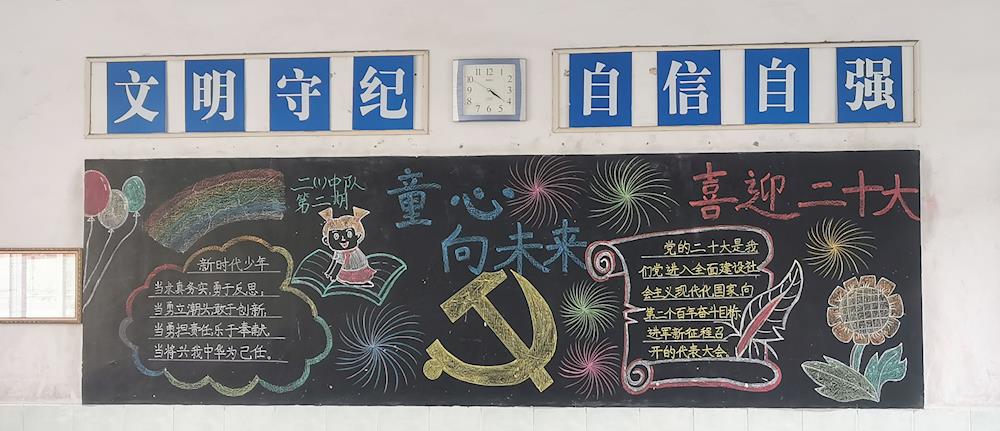 文明守纪
自信自强
二(1)中队
第二期
童心
向未来
喜迎二十大
新时代少年
当求真务实,勇于反思、
当勇立潮头敢于创新、
当勇担责任乐于奉献、
当将兴我中华为己任。
党的二十大是我
们党进入全面建设社
会主义现代化国家向
第二个百年奋斗目标
进军新征程召
开的代表大会